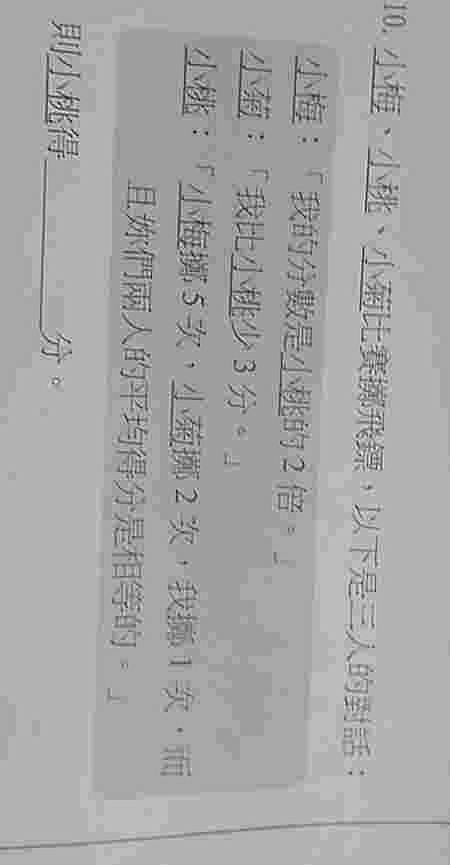 10. 小梅、小桃、小菊比賽擲飛鏢，以下是三人的對話：
小梅：「我的分數是小桃的2倍。」
小菊：「我比小桃少3分。」
小桃：「小梅擲5次，小菊擲2次，我擲1次，而
且妳們兩人的平均得分是相等的。」
則小桃得____分。